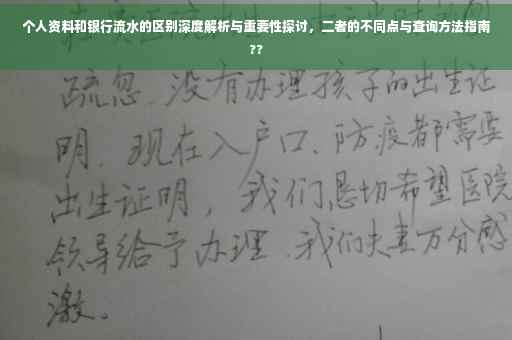 个人资料和银行流水的区别深度解析与重要性探讨，二者的不同点与查询方法指南
??
疏忽.没有办理孩子的出生证
明.现在入户口、防疫都需要
出生证明，我们恳切希望医院
领导给予办理.我们夫妻万分感
激。